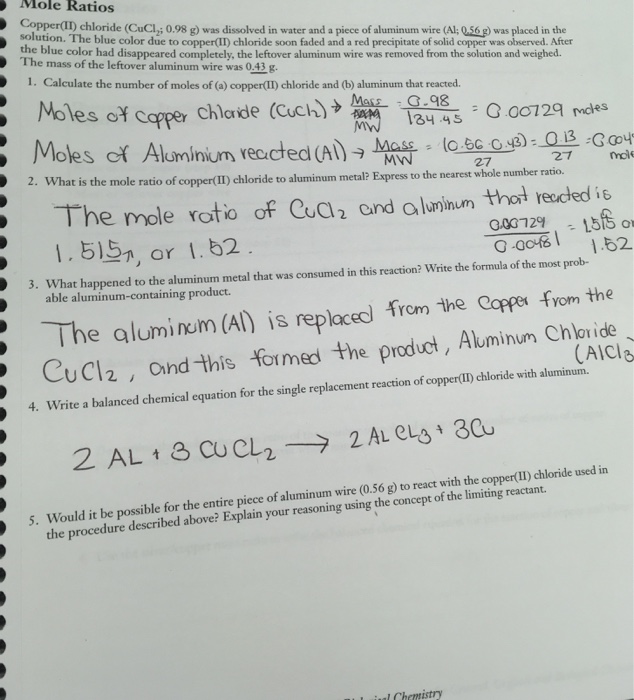 Mole Ratios
Copper(II) chloride (CuCl₂; 0.98 g) was dissolved in water and a piece of aluminum wire (Al; 0.56 g) was placed in the
solution. The blue color due to copper(II) chloride soon faded and a red precipitate of solid copper was observed. After
the blue color had disappeared completely, the leftover aluminum wire was removed from the solution and weighed.
The mass of the leftover aluminum wire was 0.43 g.
1. Calculate the number of moles of (a) copper(II) chloride and (b) aluminum that reacted.
Moles of copper chloride (CuCl₂) → Mass / MW = 0.98 / 134.45 = 0.00729 moles
Moles of Aluminium reacted (Al) → Mass / MW = (0.56 0.43) / 27 = 0.13 / 27 = 0.004
mole
2. What is the mole ratio of copper(II) chloride to aluminum metal? Express to the nearest whole number ratio.
The mole ratio of CuCl₂ and aluminum that reacted is
1.515, or 1.52. 0.00729 / 0.00481 = 1.515 or
1.52
3. What happened to the aluminum metal that was consumed in this reaction? Write the formula of the most prob-
able aluminum-containing product.
The aluminum (Al) is replaced from the copper from the
CuCl₂, and this formed the product, Aluminum Chloride
(AlCl₃
4. Write a balanced chemical equation for the single replacement reaction of copper(II) chloride with aluminum.
2 AL + 3 CUCL₂ → 2 AL CL₃ + 3Cu
5. Would it be possible for the entire piece of aluminum wire (0.56 g) to react with the copper(II) chloride used in
the procedure described above? Explain your reasoning using the concept of the limiting reactant.
Chemistry